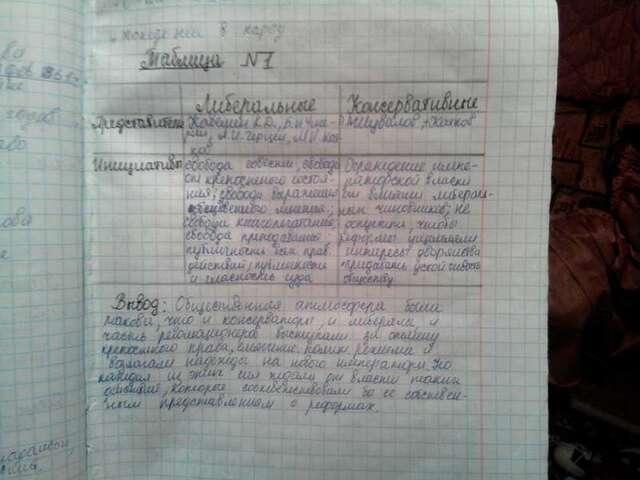 хождении в народ
Таблица №7
Либеральные
Консервативные
Представители
Кавелин К.Д., Б.Н Чиче-
рин, А.И. Герцен, М.Н. Кат-
ков
П.Шувалов, Катков
Инициативы
свобода совести; свобода
от крепостного состоя-
ния; свобода выражения
общественного мнения;
свобода книгопечатания;
свобода преподавания
публичность всех прав.
действий; публичность
и гласность суда
Ограждение импе-
раторской власти
от влияния либераль-
ных чиновников; не
допустить, чтобы
реформы ущемляли
интересы дворянства
придавать устойчивость
обществу
Вывод: Общественная атмосфера была
такова, что и консерваторы, и либералы и
часть революционеров выступали за отмену
крепостного права,
возлагали надежды на нового императора. Но
каждая из этих сил ждали от власти таких
действий, которые соответствовали бы её собствен-
ным представлениям о реформах.